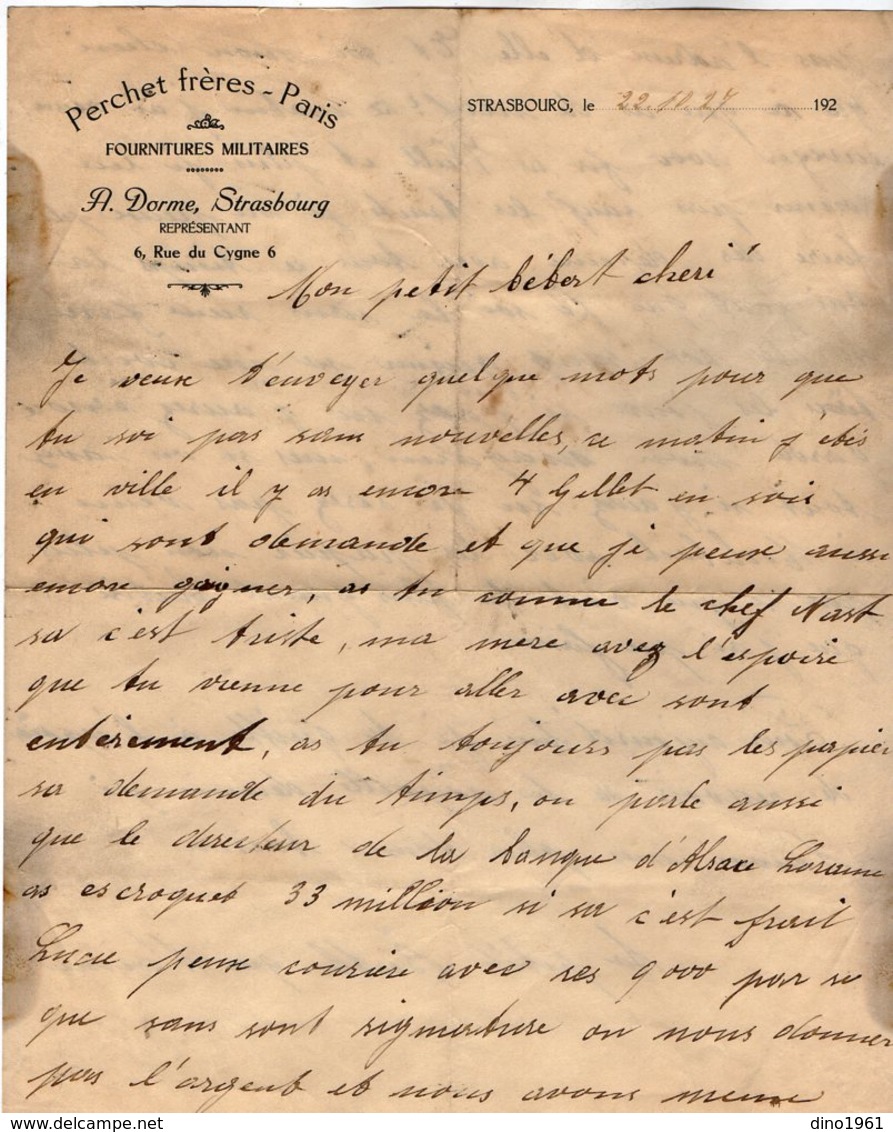 Perchet frères - Paris
FOURNITURES MILITAIRES
A. Dorme, Strasbourg
REPRÉSENTANT
6, Rue du Cygne 6
STRASBOURG, le 22.10.27 192
Mon petit bébert cheri
Je veuse t'envoyer quelque mots pour que
tu soi pas sans nouvelles, ce matin j'etés
en ville il y as encore 4 Gellet en sois
qui sont demande et que je peuse aussi
encore gagner, as tu connue le chef Nast
sa c'est triste, ma mere avez l'espoire
que tu vienne pour aller avec sont
entèrement, as tu toujours pas les papier
sa demande du timps, on parle aussi
que le directeur de la banque d'Alsace Loraine
as escroquet 33 million si sa c'est frait
Lucie peuse courière avec ses 9000 par se
que sans sont sigmature on nous donner
pas l'argent et nous avons meme
dino1961